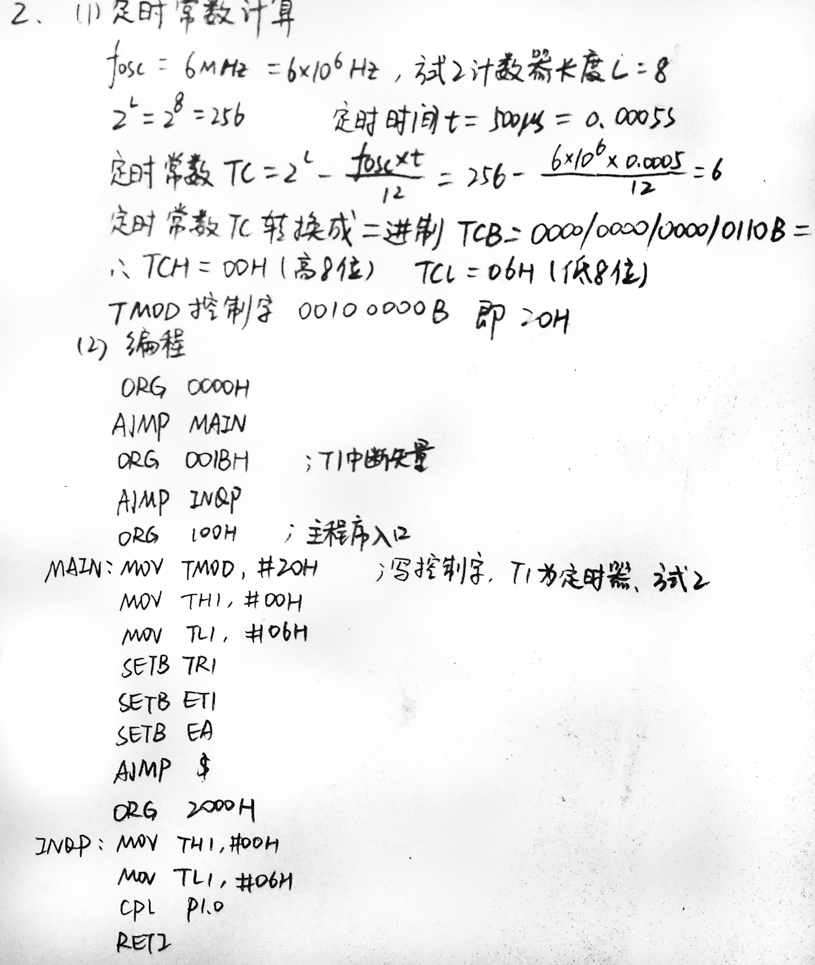 2、(1) 定时常数计算
fosc = 6MHz = 6×10⁶Hz，方式2计数器长度L=8
2ᴸ=2⁸=256 定时时间t=500μs=0.0005s
定时常数 TC = 2ᴸ - fosc×t/12 = 256 - 6×10⁶×0.0005/12 = 6
定时常数TC转换成二进制 TCB=0000/0000/0000/0110B=
∴ TCH=00H(高8位) TCL=06H(低8位)
TMOD控制字 00100000B 即 20H
(2) 编程
ORG 0000H
AJMP MAIN
ORG 001BH ;T1中断矢量
AJMP INQP
ORG 100H ;主程序入口
MAIN: MOV TMOD, #20H ;写控制字，T1为定时器、方式2
MOV TH1, #00H
MOV TL1, #06H
SETB TR1
SETB ET1
SETB EA
AJMP $
ORG 2000H
INQP: MOV TH1, #00H
MOV TL1, #06H
CPL P1.0
RETI